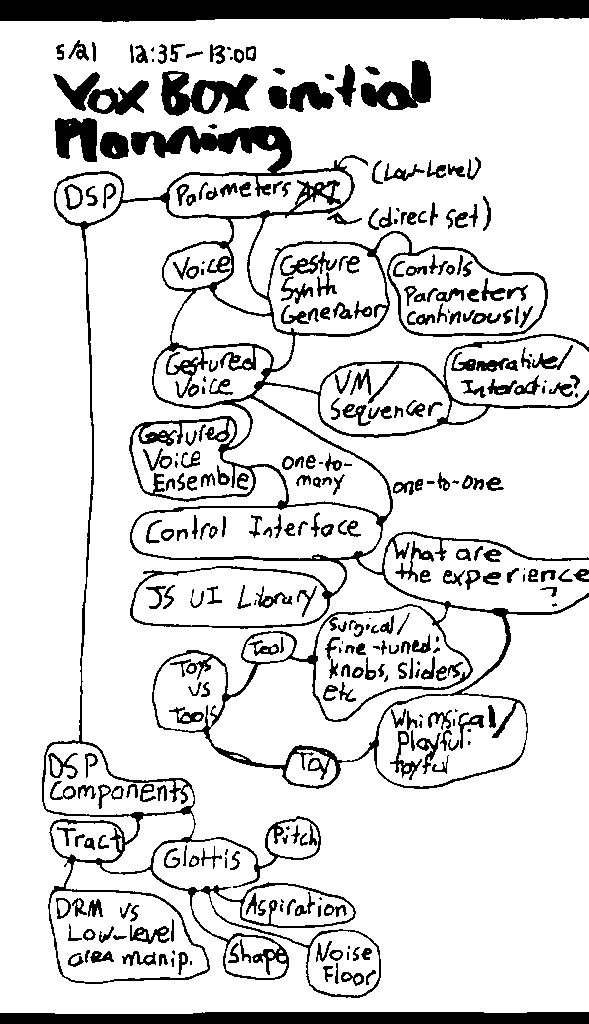 5/21 12:35-13:00
Vox Box initial
Planning
DSP
Parameters API
(Low-Level)
(direct set)
Voice
Gesture
Synth
Generator
Controls
Parameters
Continuously
Gestured
Voice
VM/
Sequencer
Generative/
Interactive?
Gestured
Voice
Ensemble
one-to-
many
one-to-one
Control Interface
What are
the experience
?
JS UI Library
Toys
vs
Tools
Tool
Surgical/
fine-tuned:
knobs, sliders,
etc
Toy
Whimsical/
Playful:
toyful
DSP
Components
Tract
Glottis
Pitch
DRM vs
Low-level
area manip.
Aspiration
Shape
Noise
Floor